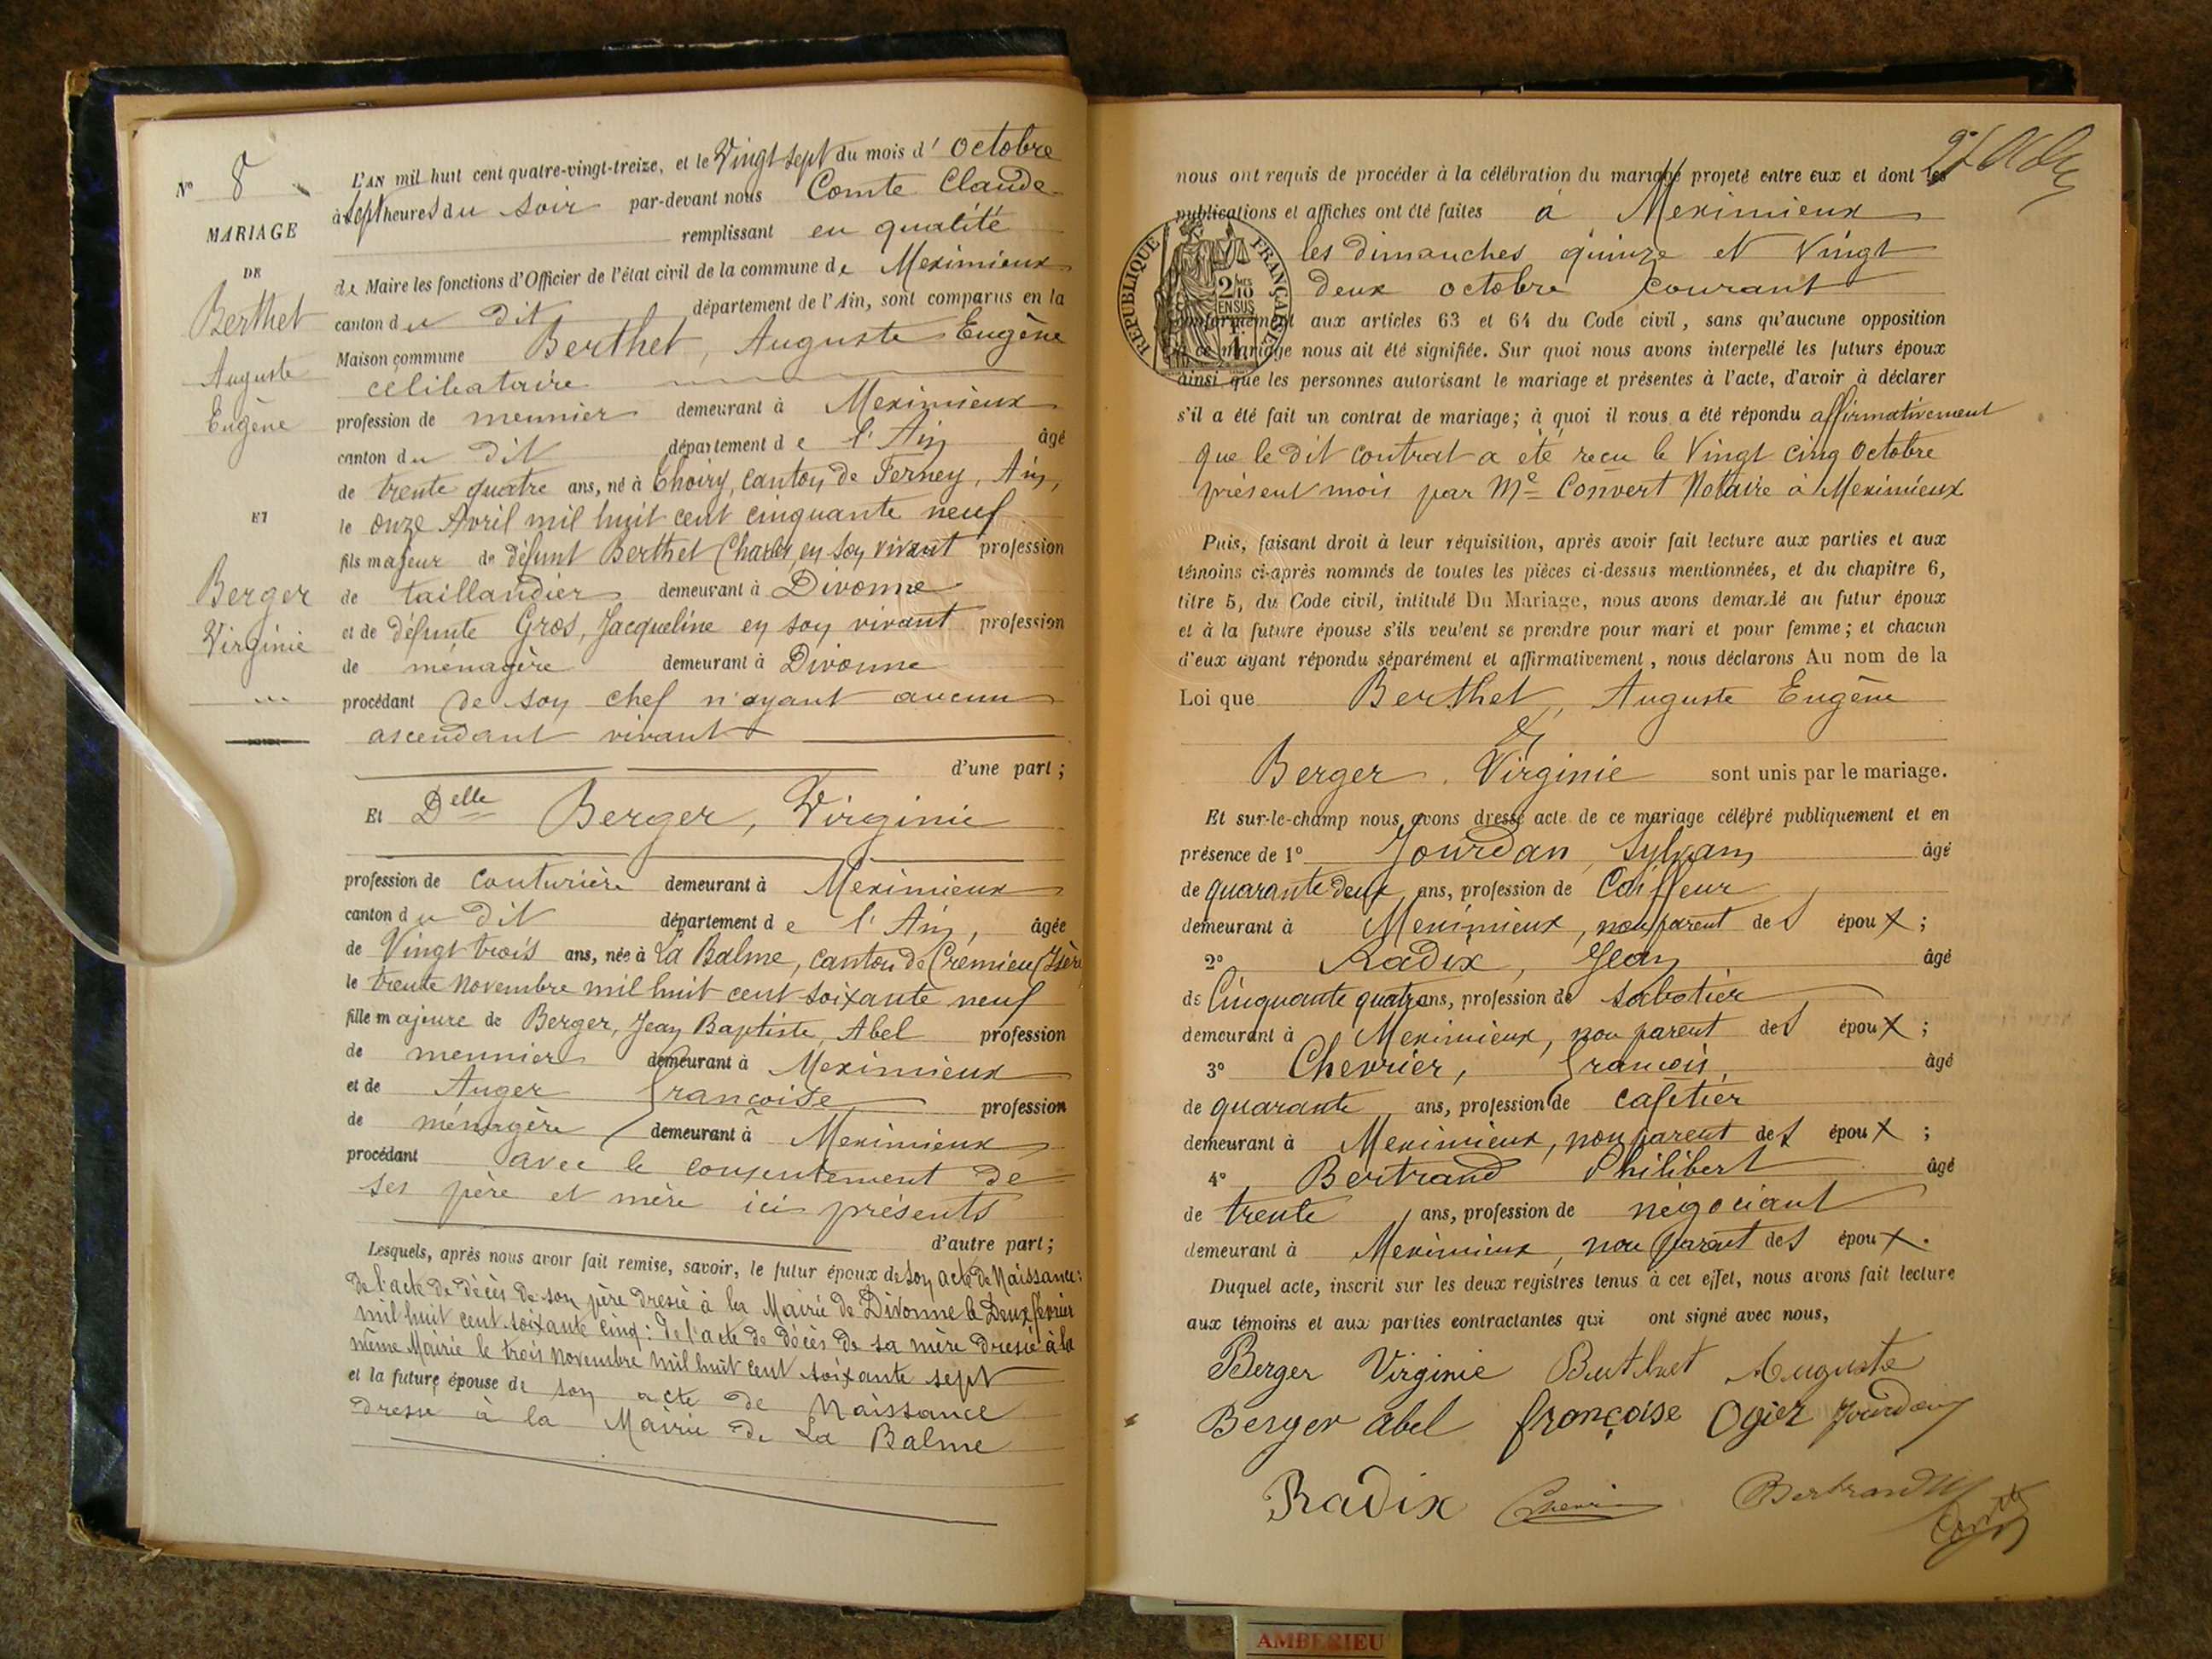 N° 8
MARIAGE
DE
Berthet
Auguste
Eugène
ET
Berger
Virginie
L'AN mil huit cent quatre-vingt-treize, et le Vingt sept du mois d' octobre
à sept heures du soir par-devant nous Comte Claude
remplissant en qualité
de Maire les fonctions d'Officier de l'état civil de la commune de Meximieux
canton du dit département de l'Ain, sont comparus en la
Maison commune Berthet, Auguste Eugène
célibataire
profession de meunier demeurant à Meximieux
canton du dit département de l'Ain âgé
de trente quatre ans, né à Thoiry, canton de Ferney, Ain,
le onze Avril mil huit cent cinquante neuf
fils majeur de défunt Berthet Charles, en son vivant profession
de taillandier demeurant à Divonne
et de défunte Gros, Jacqueline en son vivant profession
de ménagère demeurant à Divonne
procédant de son chef n'ayant aucun
ascendant vivant
d'une part;
Et Delle Berger, Virginie
profession de couturière demeurant à Meximieux
canton du dit département de l'Ain, âgée
de Vingt trois ans, née à La Balme, canton de Crémieu Isère
le trente novembre mil huit cent soixante neuf
fille majeure de Berger, Jean Baptiste, Abel profession
de meunier demeurant à Meximieux
et de Auger Françoise profession
de ménagère demeurant à Meximieux
procédant avec le consentement de
ses père et mère ici présents
d'autre part;
Lesquels, après nous avoir fait remise, savoir, le futur époux de son acte de Naissance:
de l'acte de décès de son père dressé à la Mairie de Divonne le Deux février
mil huit cent soixante cinq: de l'acte de décès de sa mère dressé à la
même Mairie le trois novembre mil huit cent soixante sept
et la future épouse de son acte de Naissance
dressé à la Mairie de La Balme
nous ont requis de procéder à la célébration du mariage projeté entre eux et dont les
publications et affiches ont été faites à Meximieux
les dimanches quinze et Vingt
deux octobre courant
REPUBLIQUE FRANÇAISE
2/10
EN SUS
conformément aux articles 63 et 64 du Code civil, sans qu'aucune opposition
à ce mariage nous ait été signifiée. Sur quoi nous avons interpellé les futurs époux
ainsi que les personnes autorisant le mariage et présentes à l'acte, d'avoir à déclarer
s'il a été fait un contrat de mariage; à quoi il nous a été répondu affirmativement
que le dit contrat a été recu le Vingt cinq Octobre
présent mois par Me Convert Notaire à Meximieux
Puis, faisant droit à leur réquisition, après avoir fait lecture aux parties et aux
témoins ci-après nommés de toutes les pièces ci-dessus mentionnées, et du chapitre 6,
titre 5, du Code civil, intitulé Du Mariage, nous avons demandé au futur époux
et à la future épouse s'ils veulent se prendre pour mari et pour femme; et chacun
d'eux ayant répondu séparément et affirmativement, nous déclarons Au nom de la
Loi que Berthet, Auguste Eugène
Et
Berger Virginie sont unis par le mariage.
Et sur-le-champ nous avons dressé acte de ce mariage célébré publiquement et en
présence de 1° Jourdan, Sylvain âgé
de quarante deux ans, profession de Coiffeur
demeurant à Meximieux, non parent des époux;
2° Radix, Jean âgé
de Cinquante quatre ans, profession de sabotier
demeurant à Meximieux, non parent des époux;
3° Chevrier, François, âgé
de quarante ans, profession de cafetier
demeurant à Meximieux, non parent des époux;
4° Bertrand Philibert âgé
de trente ans, profession de négociant
demeurant à Meximieux, non parent des époux.
Duquel acte, inscrit sur les deux registres tenus à cet effet, nous avons fait lecture
aux témoins et aux parties contractantes qui ont signé avec nous,
Berger Virginie Berthet Auguste
Berger abel françoise Ogier Jourdan
Radix Chevrier Bertrand
AMBERIEU